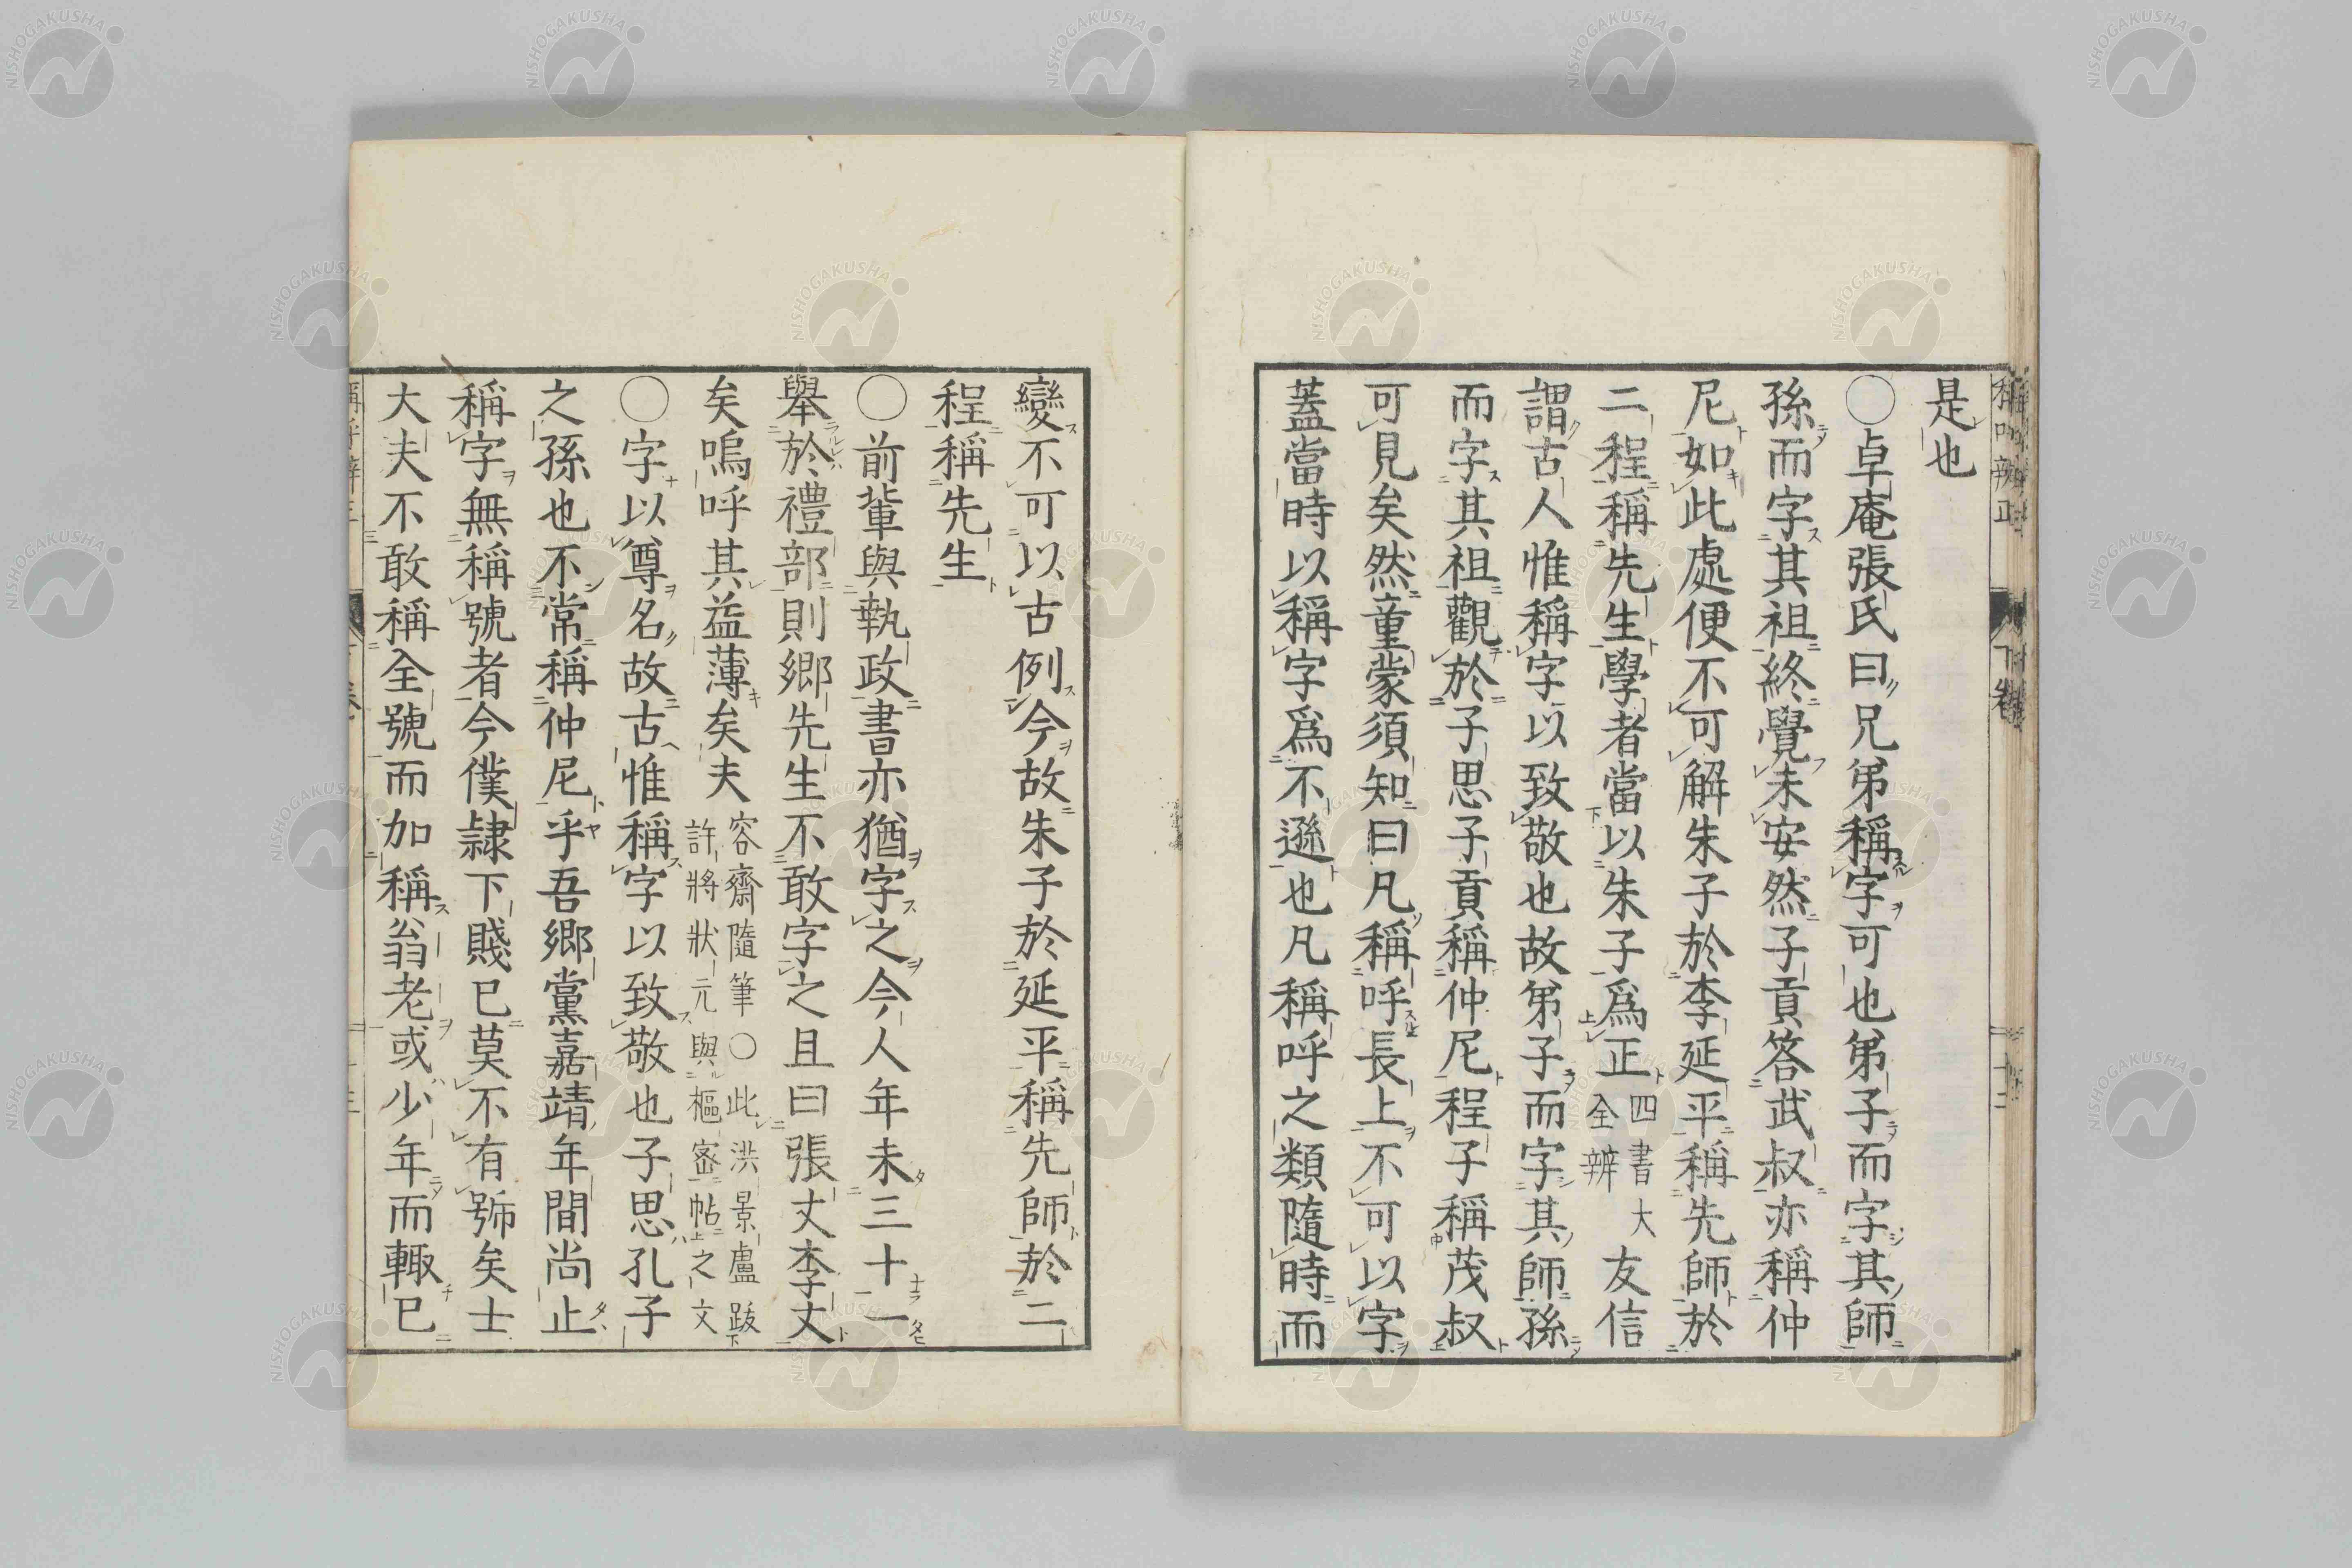 是也
〇卓庵張氏曰兄弟稱字可也弟子而字其師
孫而字其祖終覺未安然子貢答武叔亦稱仲
尼如此處便不可解朱子於李延平稱先師於
二程稱先生學者當以朱子爲正四書大全辨友信
謂古人惟稱字以致敬也故弟子而字其師孫
而字其祖觀於子思子貢稱仲尼程子稱茂叔
可見矣然童蒙須知曰凡稱呼長上不可以字
蓋當時以稱字爲不遜也凡稱呼之類隨時而
變不可以古例今故朱子於延平稱先師於二
程稱先生
〇前輩與執政書亦猶字之今人年未三十一
舉於禮部則鄉先生不敢字之且曰張丈李丈
矣嗚呼其益薄矣夫容齋隨筆〇此洪景盧跋許將狀元與樞密帖之文
〇字以尊名故古惟稱字以致敬也子思孔子
之孫也不常稱仲尼乎吾鄉黨嘉靖年間尚止
稱字無稱號者今僕隷下賤已莫不有號矣士
大夫不敢稱全號而加稱翁老或少年而輙已
下卷
NISHOGAKUSHA